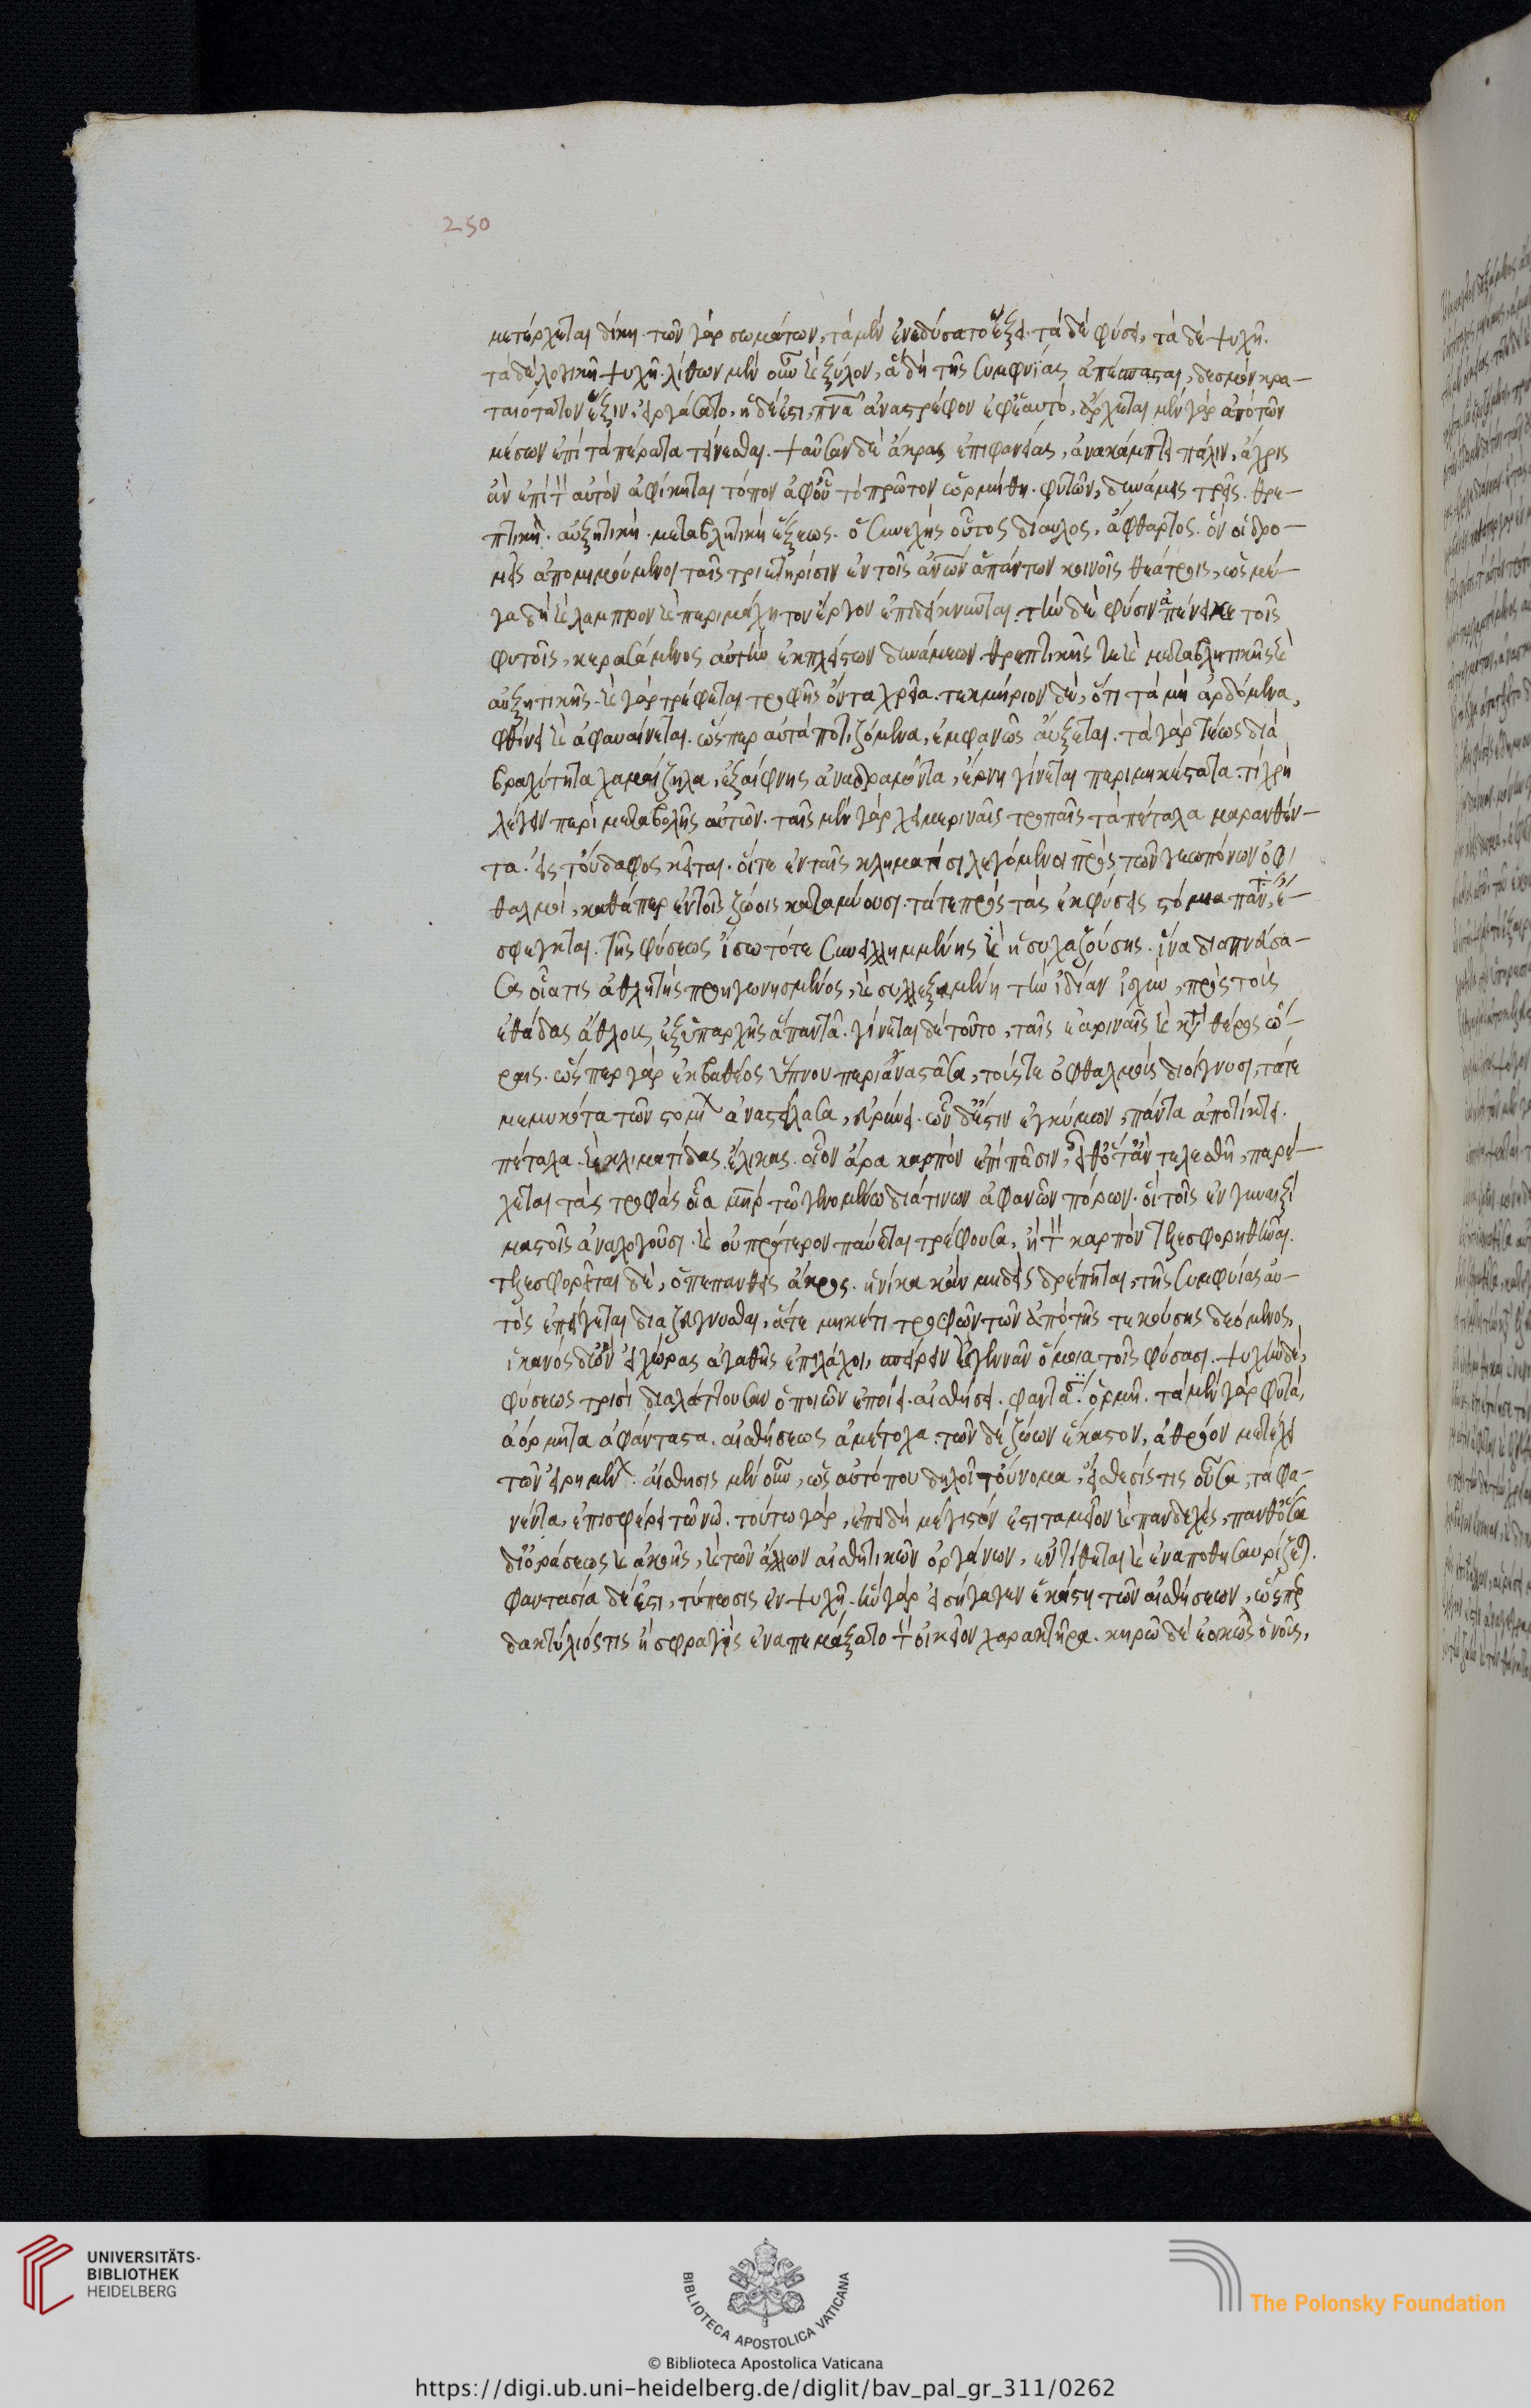 250
μετέρχεται δίκη. τῶν γὰρ σωμάτων, τὰ μὲν ἐνεδύσατο ἕξει. τὰ δὲ φύσει, τὰ δὲ ψυχῇ.
τὰ δὲ λογικῇ ψυχῇ. λίθων μὲν οὖν καὶ ξύλον, ἃ δὴ τῆς συμφυΐας ἀπέσπασται, δεσμὸν κρα-
ταιότατον ἕξιν, εἰργάσατο, ἡ δέ ἐστι, πνα ἀναστρέφον ἐφ' ἑαυτό, ἄρχεται μὲν γὰρ ἀπὸ τῶν
μέσων ἐπὶ τὰ πέρατα τείνεσθαι. ψαῦσαν δὲ ἄκρας ἐπιφανείας, ἀνακάμπτει πάλιν, ἄχρις
ἂν ἐπὶ τὸν αὐτὸν ἀφίκηται τόπον ἀφ' οὗ τὸ πρῶτον ὡρμήθη. φυτῶν, δυνάμεις τρεῖς. θρε-
πτικὴ. αὐξητικὴ. μεταβλητικὴ ἕξεως. ὁ συνεχὴς οὗτος δίαυλος, ἄφθαρτος. ὃν οἱ δρο-
μεῖς ἀπομιμούμενοι ταῖς τριετηρίσιν ἐν τοῖς ἀνῶν ἁπάντων κοινοῖς θεάτροις, ὡς μέ-
γα δὴ καὶ λαμπρὸν καὶ περιμάχητον ἔργον ἐπιδείκνυνται. τὴν δὲ φύσιν ἀπένειμε τοῖς
φυτοῖς, κερασάμενος αὐτὴν ἐκ πλείστων δυνάμεων θρεπτικῆς τε καὶ μεταβλητικῆς καὶ
αὐξητικῆς. καὶ γὰρ τρέφεται τροφῆς ὄντα χρεῖα. τεκμήριον δὲ, ὅτι τὰ μὴ ἀρδόμενα,
φθίνει καὶ ἀφαυαίνεται. ὥσπερ αὐτὰ ποτιζόμενα, ἐμφανῶς αὔξεται. τὰ γὰρ τέως διὰ
βραχύτητα χαμαίζηλα, ἐξαίφνης ἀναδραμόντα, ἔρνη γίνεται περιμηκέστατα. τί χρὴ
λέγειν περὶ μεταβολῆς αὐτῶν. ταῖς μὲν γὰρ χειμεριναῖς τροπαῖς τὰ πέταλα μαρανθέν-
τα. εἰς τοὔδαφος χεῖται. οἵτε ἐν ταῖς κληματίσι λεγόμενοι πρὸς τῶν γεωπόνων ὀφ-
θαλμοὶ, καθάπερ ἐν τοῖς ζώοις καταμύουσι. τά τε πρὸς τὰς ἐκφύσεις στόμια πάντα, ἐ-
σφιγκται. τῆς φύσεως εἴσω τότε συνειλημμένης καὶ ἡσυχαζούσης. ἵνα διαπνεύσα-
σα οἷά τις ἀθλητὴς προηγωνισμένος, καὶ συλλεξαμένη τὴν ἰδίαν ἰσχὺν, πρὸς τοὺς
ἐθάδας ἄθλους ἐξ ὑπαρχῆς ἀπαντᾷ. γίνεται δὲ τοῦτο, ταῖς ἐαριναῖς καὶ κατὰ θέρος ὥ-
ραις. ὥσπερ γὰρ ἐκ βαθέος ὕπνου περιαναστᾶσα, τούς τε ὀφθαλμοὺς διοίγνυσι, τά τε
μεμυκότα τῶν στομίων ἀναστείλασα, εὐρύνει. ὧν δ' ἐστιν ἐγκύμων, πάντα ἀποτίκτει.
πέταλα. καὶ κλιματίδας. ἕλικας. οἶον ἄρα καρπὸν ἐπὶ πᾶσιν, εἶθ' ὅταν τελεσθῇ, παρέ-
χεται τὰς τροφὰς οἷα μηρ τῷ γενομένω διά τινων ἀφανῶν πόρων. οἳ τοῖς ἐν γυναιξὶ
μαστοῖς ἀναλογοῦσι. καὶ οὐ πρότερον παύεται τρέφουσα, ἢ τὸν καρπὸν τελεσφορηθῆναι.
τελεσφορεῖται δὲ, ὁ πεπανθεὶς ἄκρως. ἡνίκα κἂν μηδεὶς δρέπηται, τῆς συμφυΐας αὐ-
τὸς ἐπείγεται διαζεύγνυσθαι, ἅτε μηκέτι τροφῶν τῶν ἀπὸ τῆς τεκούσης δεόμενος,
ἱκανὸς δ' ὢν εἰ χώρας ἀγαθῆς ἐπιλάχοι, σπείρειν καὶ γεννᾶν ὅμοια τοῖς φύσασι. ψυχὴν δὲ,
φύσεως τρισὶ διαλάττουσαν ὁ ποιῶν ἐποίει. αἰσθήσει. φαντασία. ὁρμῇ. τὰ μὲν γὰρ φυτὰ,
ἀόρμητα ἀφάνταστα. αἰσθήσεως ἀμέτοχα. τῶν δὲ ζώων ἕκαστον, ἀθρόον μετέχει
τῶν εἰρημένων. αἴσθησις μὲν οὖν, ὡς αὐτό που δηλοῖ τοὔνομα, εἴσθεσίς τις οὖσα, τὰ φα-
νέντα, ἐπισφέρει τῷ νῷ. τούτω γάρ, ἐπειδὴ μέγιστόν ἐστι ταμεῖον καὶ πανδεχὲς, πανθ' ὅσα
δι' ὁράσεως καὶ ἀκοῆς, καὶ τῶν ἄλλων αἰσθητικῶν ὀργάνων, ἐντίθεται καὶ ἐναποθησαυρίζεται.
φαντασία δέ ἐστι, τύπωσις ἐν ψυχῇ. ὧν γὰρ εἰσήγαγεν ἑκάστη τῶν αἰσθήσεων, ὥσπερ
δακτύλιός τις ἢ σφραγὶς ἐναπεμάξατο τὸν οἰκεῖον χαρακτῆρα. κηρῷ δὲ ἐοικὼς ὁ νοῦς,
UNIVERSITÄTS-
BIBLIOTHEK
HEIDELBERG
BIBLIOTECA APOSTOLICA VATICANA
The Polonsky Foundation
© Biblioteca Apostolica Vaticana
https://digi.ub.uni-heidelberg.de/diglit/bav_pal_gr_311/0262